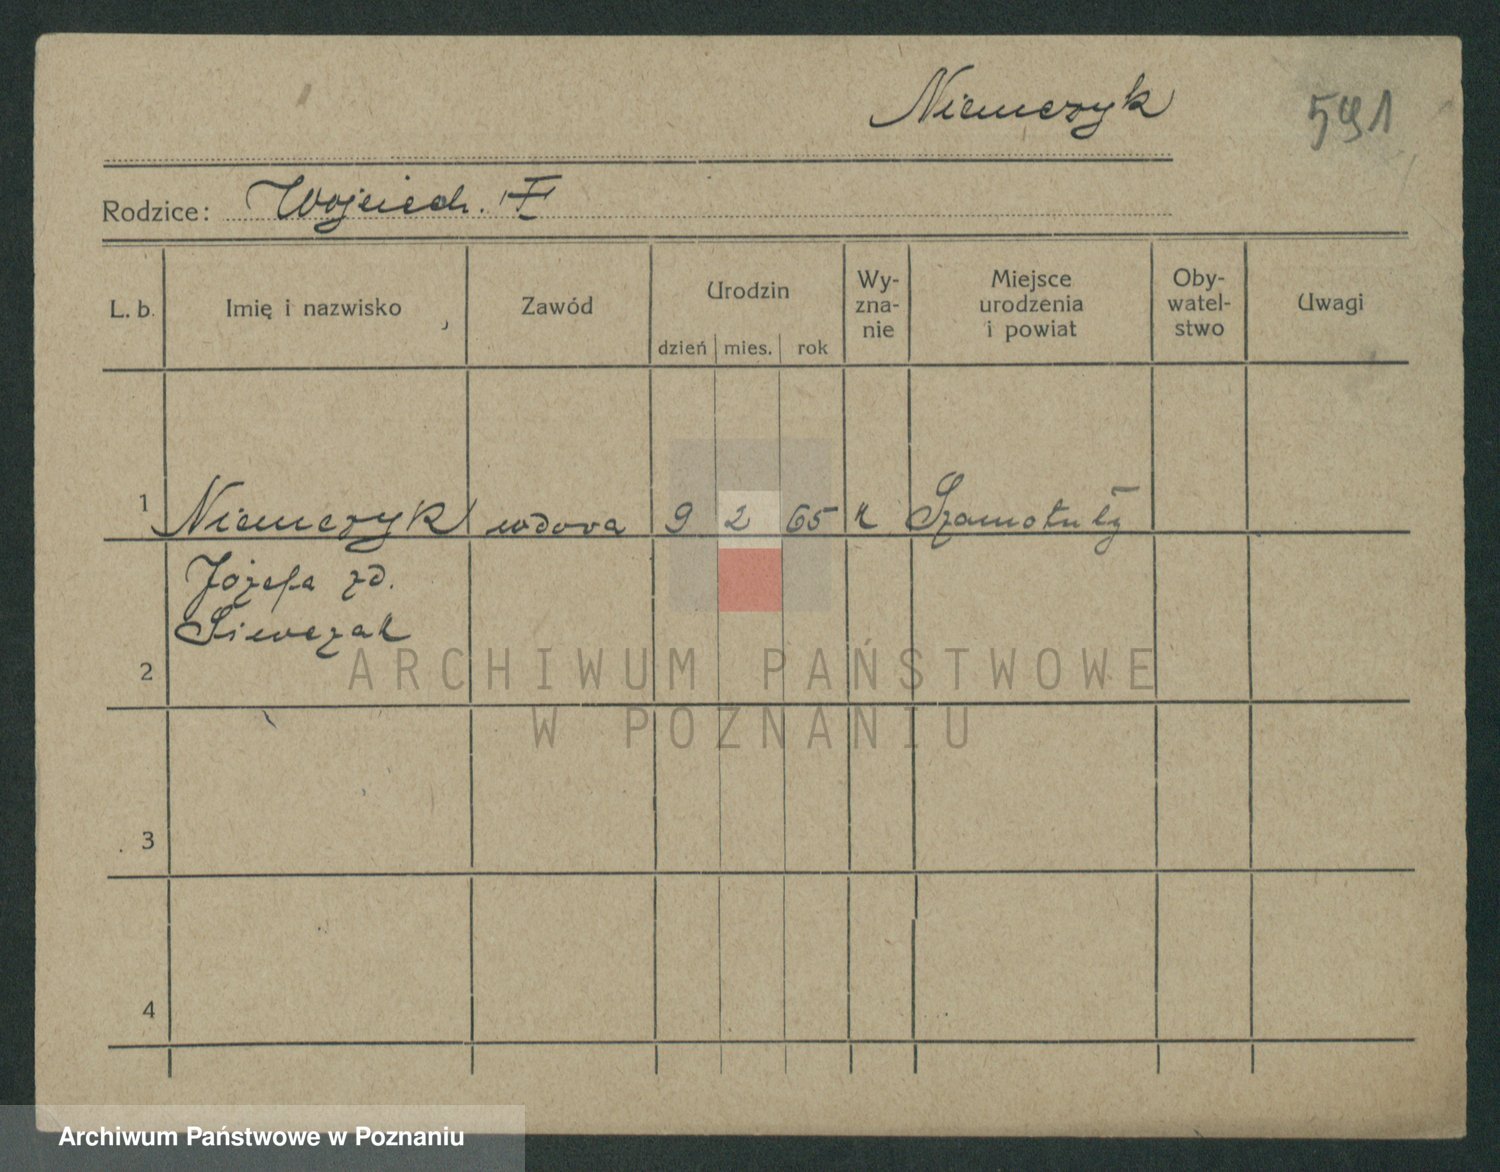 Niemczyk
591
Rodzice: Wojciech. I
L. b. Imię i nazwisko Zawód Urodzin Wy-zna-nie Miejsce urodzenia i powiat Oby-watel-stwo Uwagi
dzień mies. rok
1 Niemczyk wdowa 9 2 65 k Szamotuły
Józefa zd.
Siewczak
2
ARCHIWUM PAŃSTWOWE
W POZNANIU
3
4
Archiwum Państwowe w Poznaniu